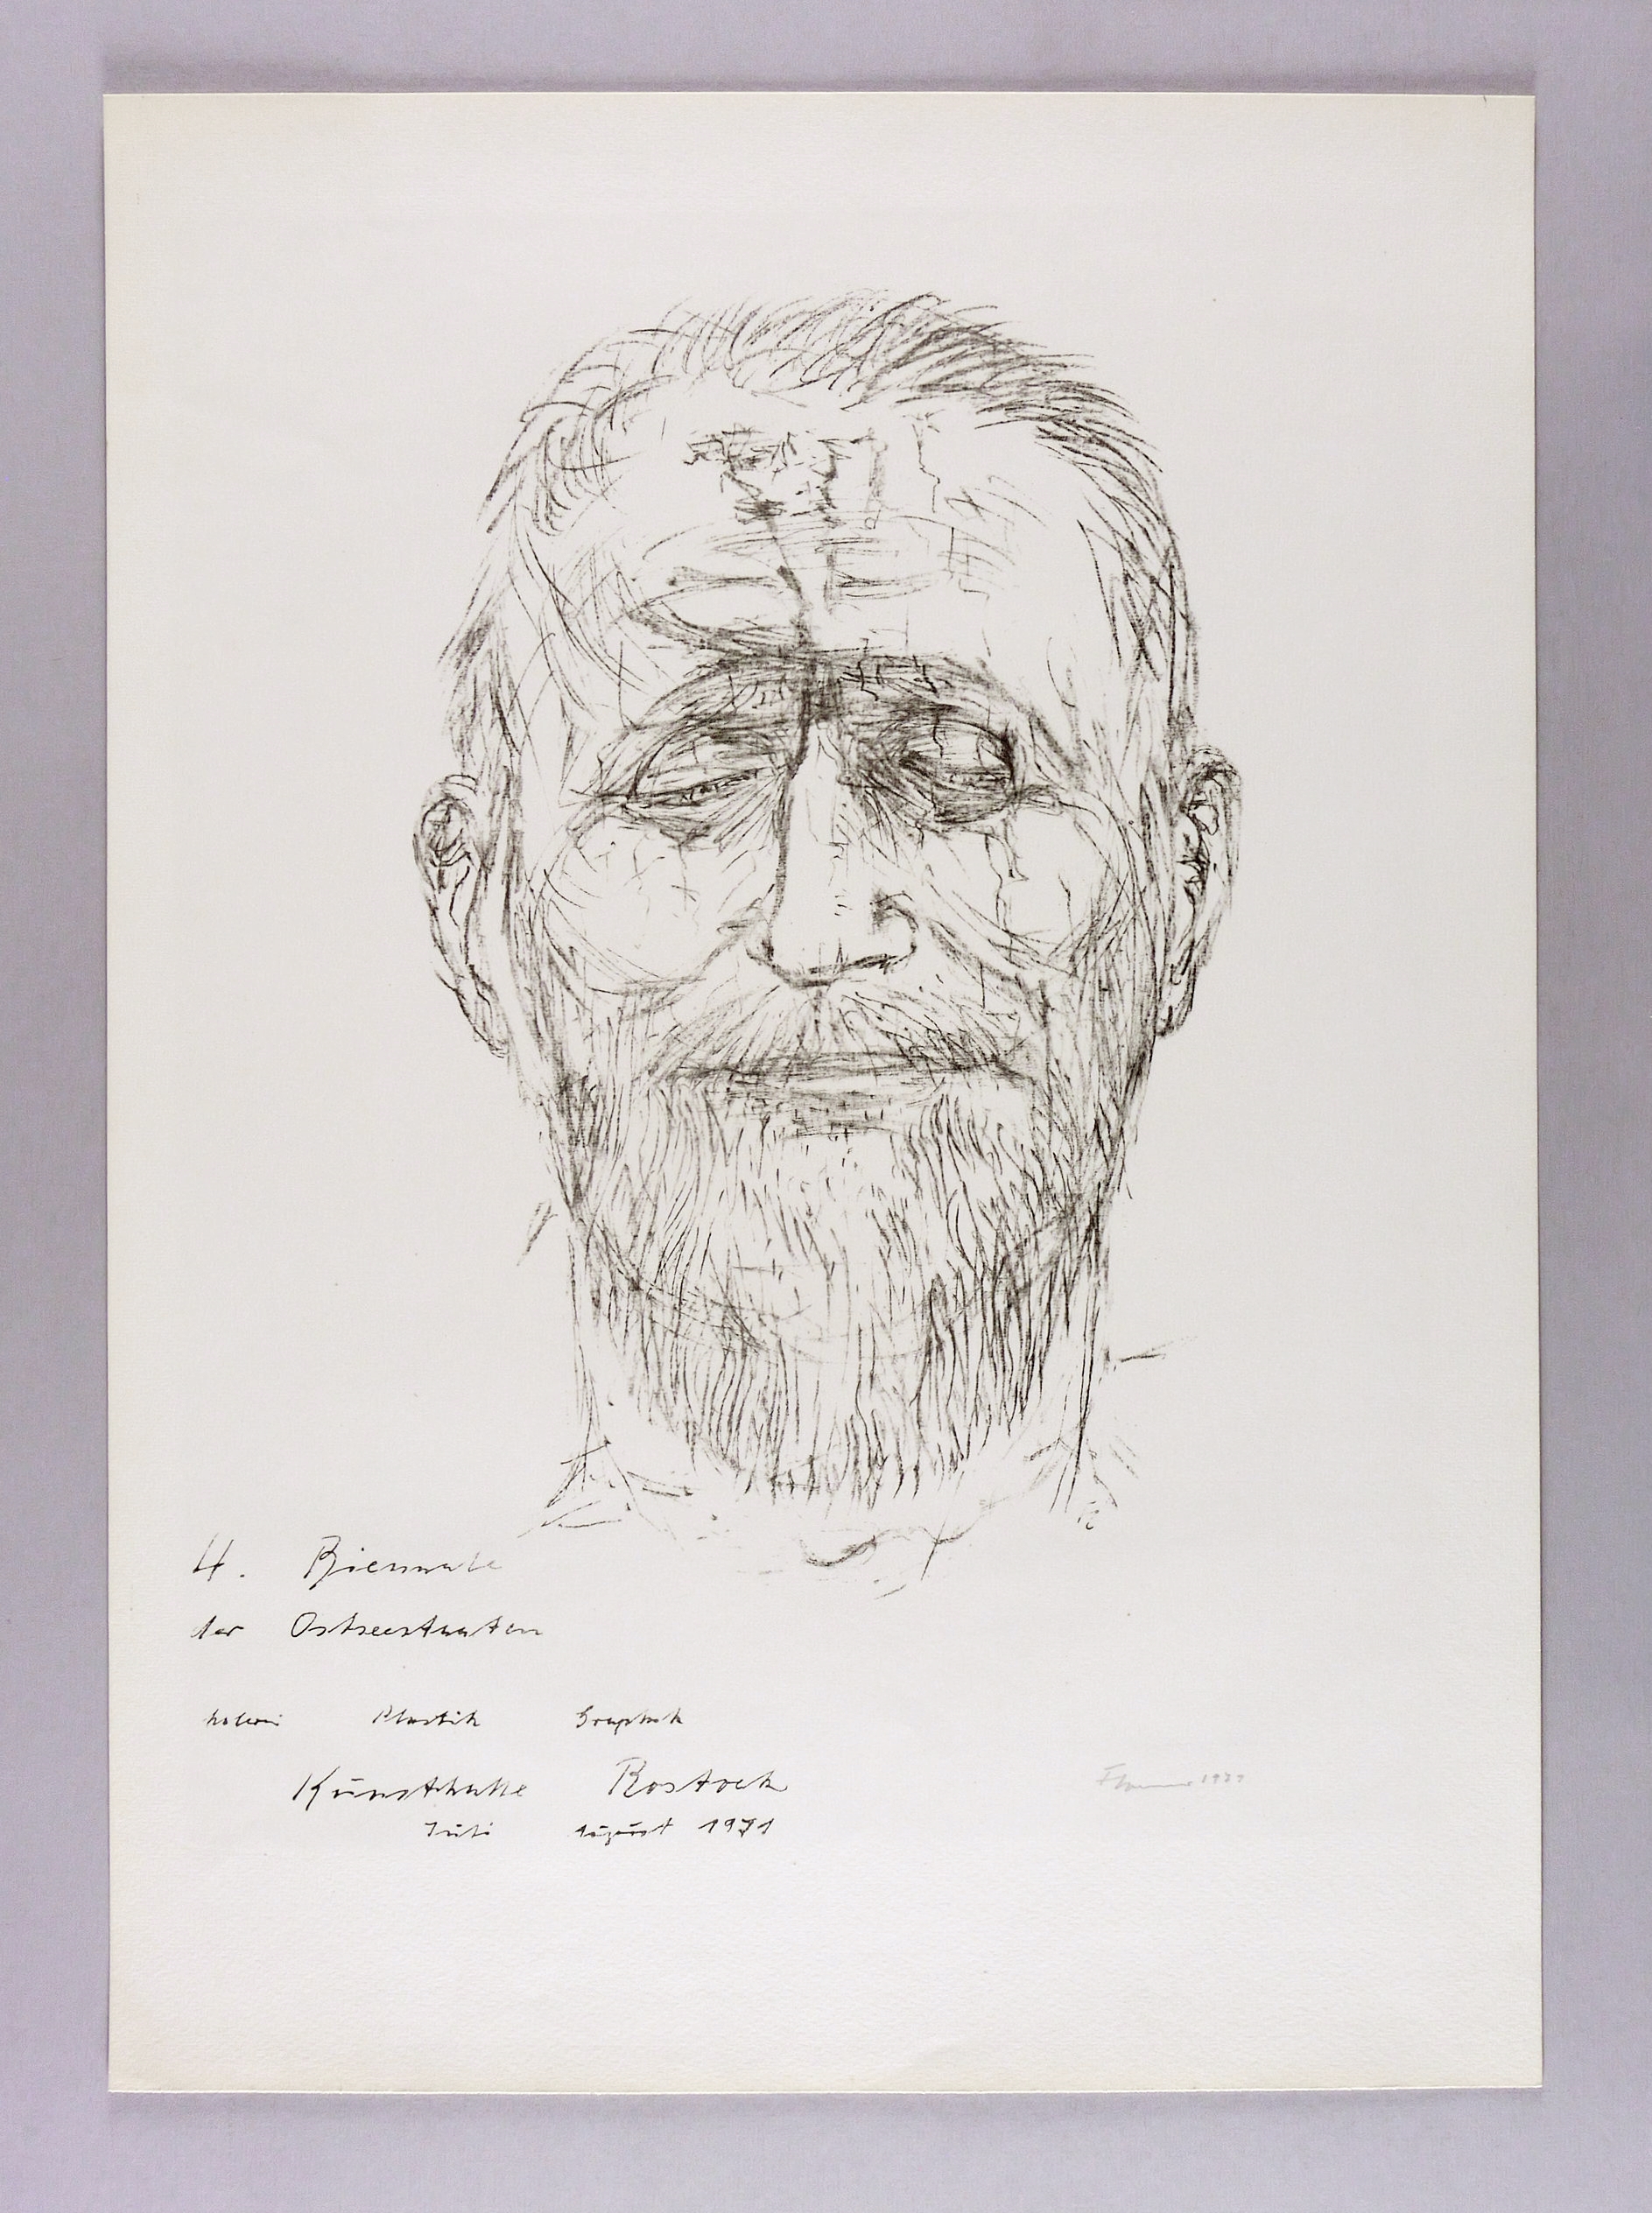 4. Biennale
der Ostseestaaten
Malerei Plastik Graphik
Kunsthalle Rostock
Juli August 1971